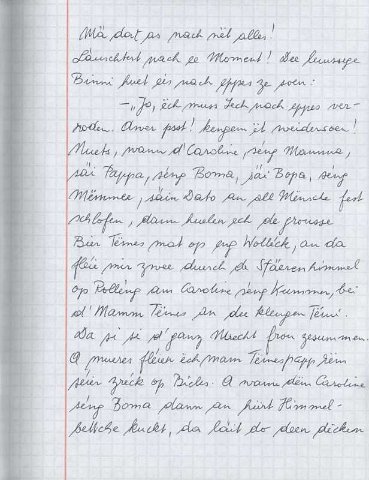 Mä dat as nach nët alles!
Lauschtert nach ee Moment! Dee lausege
Binni huet eis nach eppes ze soen:
–„Jo, ëch muss Iech noch eppes ver-
roden. Awer psst! kengem ët weidersoen!
Nuets, wann d'Caroline, seng Mamma,
säi Pappa, seng Boma, säi Bopa, seng
Mëmmee, säin Dato an all Mënsche fest
schlofen, dann huelen ech de grousse
Bier Teines mat op eng Wollëck, an da
fléie mir zwee duerch de Stäerenhimmel
op Rolleng am Caroline seng Kummer, bei
d'Mamm Teines an dee klengen Teini.
Da si si d'ganz Nuecht frou zesummen.
A mueres fléien ëch mam Teinespapp rëm
séier zréck op Bieles. A wann dem Caroline
seng Boma dann an hiirt Himmel-
bettche kuckt, da läit do deen décken